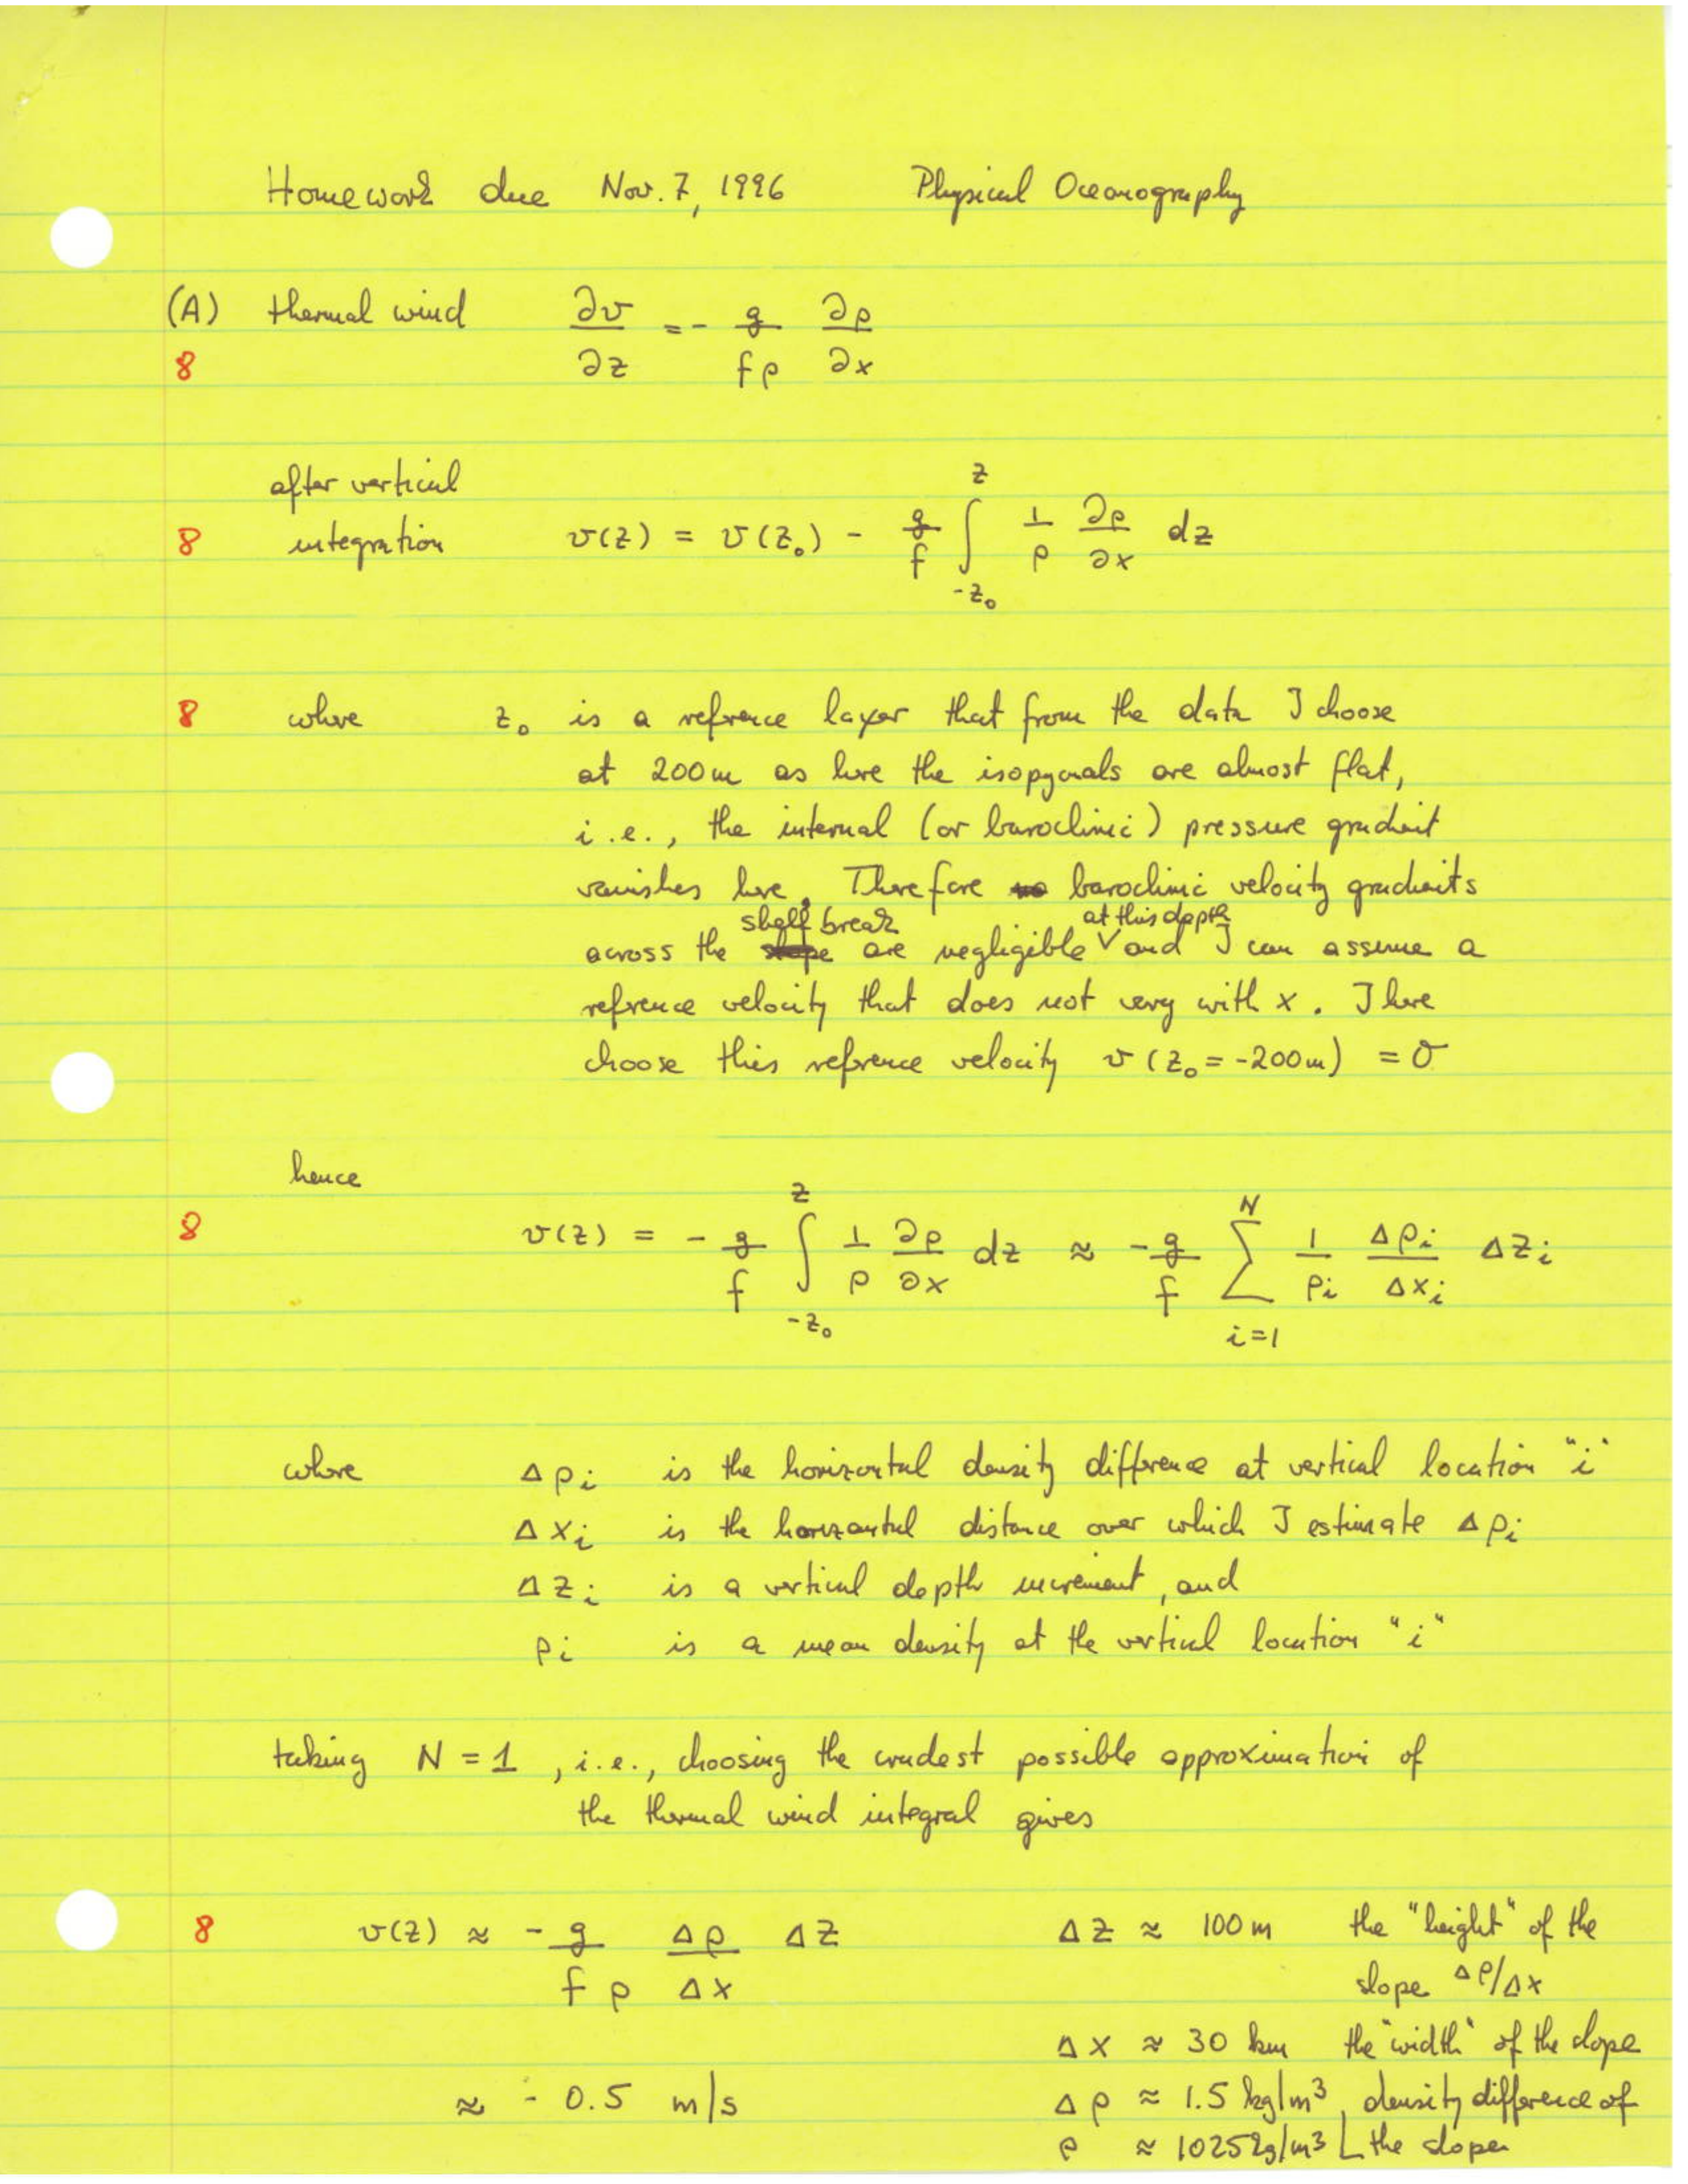 Homework due Nov. 7, 1996 Physical Oceanography
(A) thermal wind ∂v/∂z = - g/(fρ) ∂ρ/∂x
8
after vertical
8 integration v(z) = v(z₀) - g/f ∫_{-z₀}^{z} 1/ρ ∂ρ/∂x dz
8 where z₀ is a refrence layer that from the data I choose
at 200m as here the isopycnals are almost flat,
i.e., the internal (or baroclinic) pressure gradient
vanishes here. Therefore baroclinic velocity gradients
across the shelf break are negligible at this depth and I can assume a
refrence velocity that does not vary with x. I here
choose this refrence velocity v(z₀ = -200m) = 0
hence
8 v(z) = - g/f ∫_{-z₀}^{z} 1/ρ ∂ρ/∂x dz ≈ - g/f ∑_{i=1}^{N} 1/ρᵢ Δρᵢ/Δxᵢ Δzᵢ
where Δρᵢ is the horizontal density difference at vertical location "i"
Δxᵢ is the horizontal distance over which I estimate Δρᵢ
Δzᵢ is a vertical depth increment, and
ρᵢ is a mean density at the vertical location "i"
taking N = 1, i.e., choosing the crudest possible approximation of
the thermal wind integral gives
8 v(z) ≈ - g/(fρ) Δρ/Δx Δz Δz ≈ 100m the "height" of the
slope Δρ/Δx
Δx ≈ 30 km the "width" of the slope
≈ - 0.5 m/s Δρ ≈ 1.5 kg/m³, density difference of
ρ ≈ 1025 kg/m³ the slope